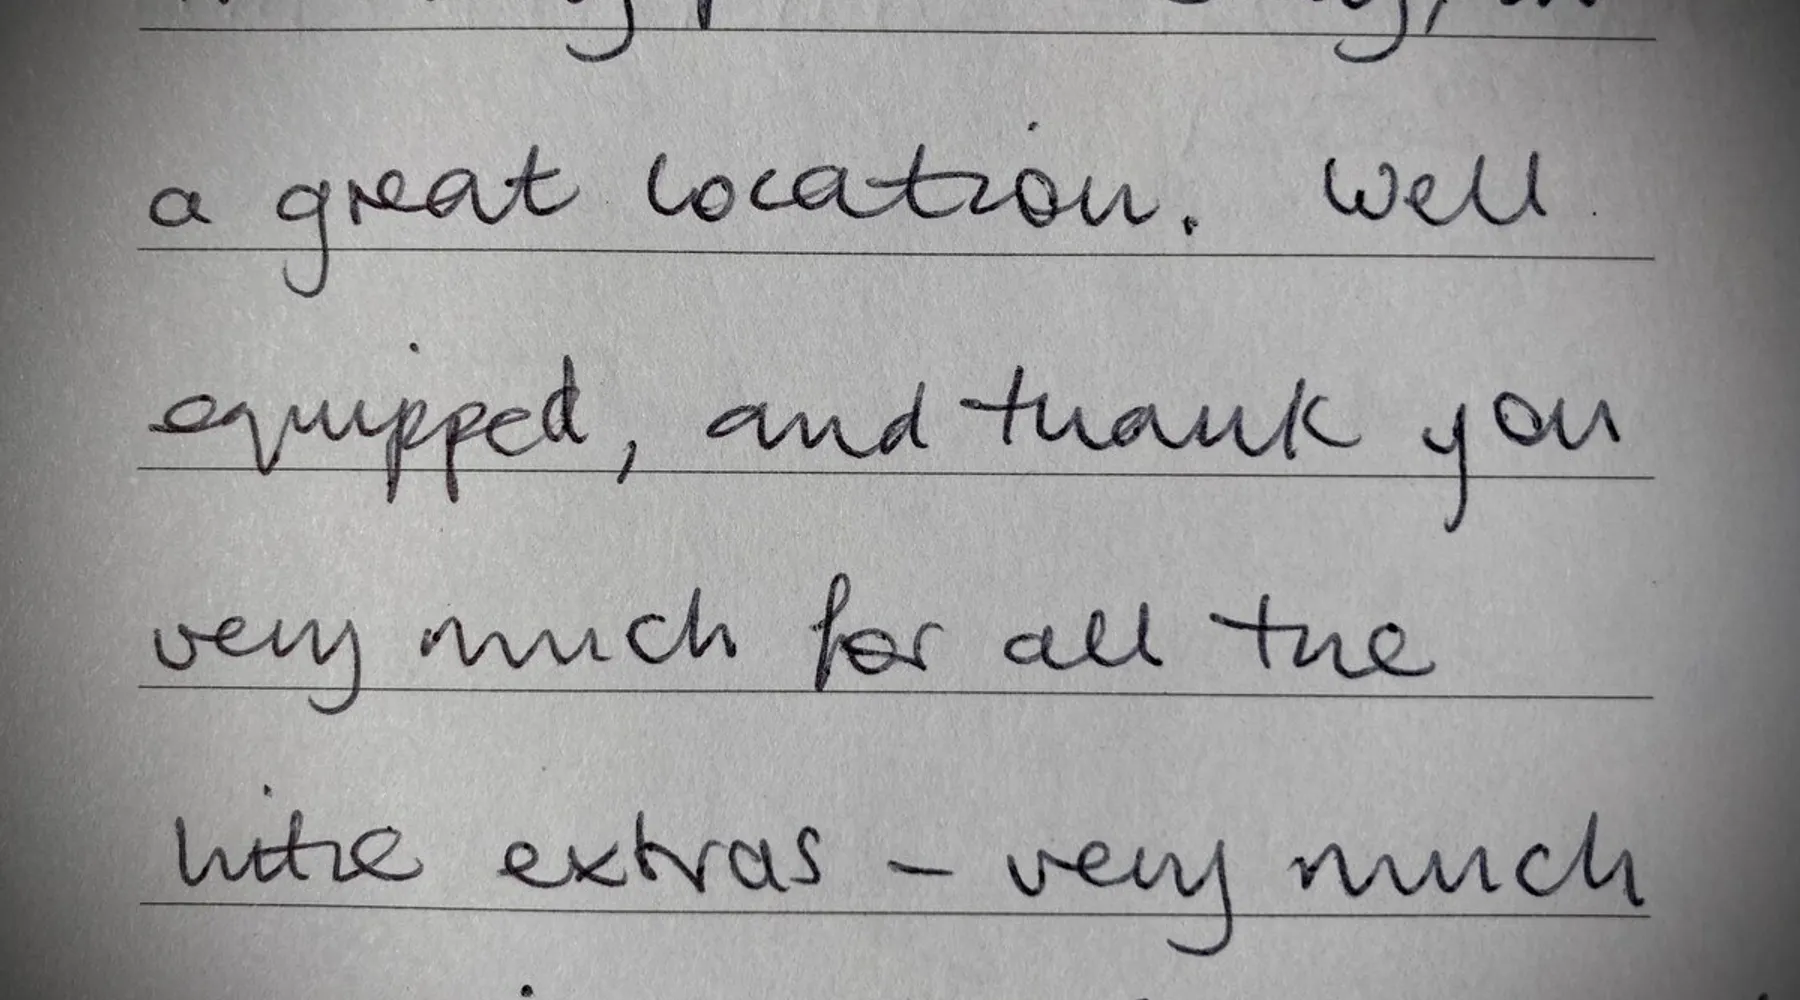 a great location. Well
equipped, and thank you
very much for all the
little extras - very much